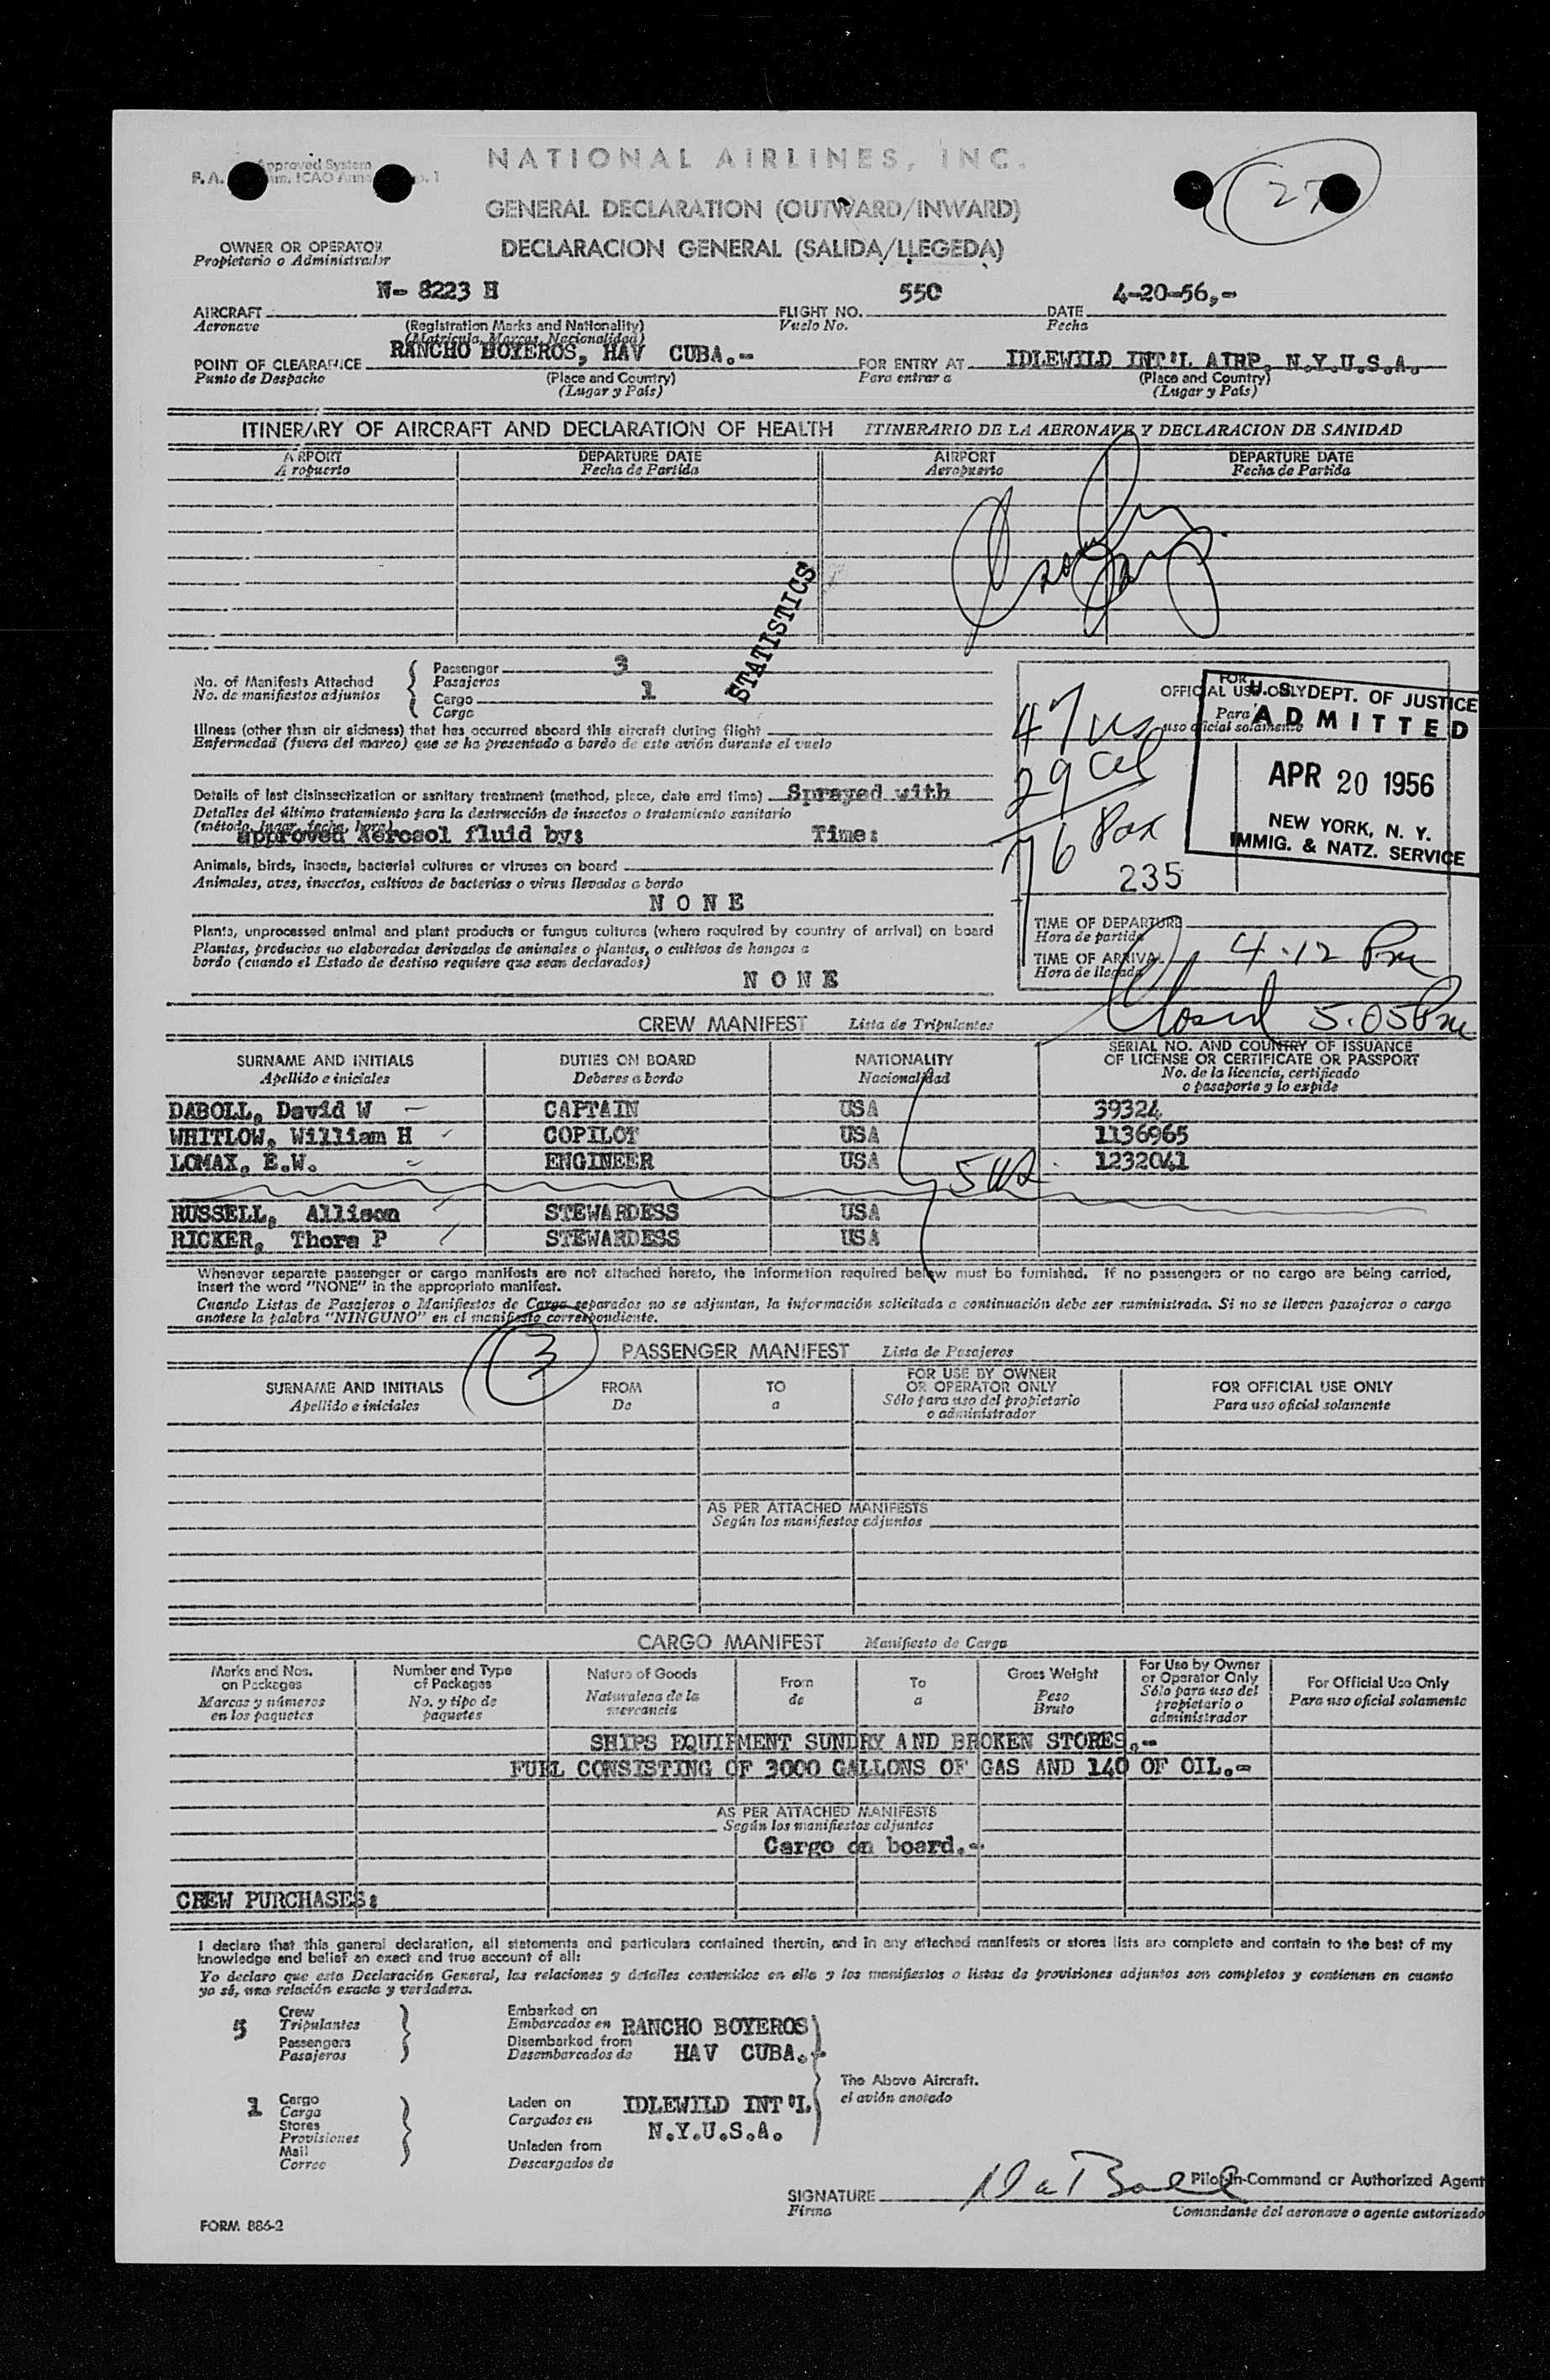 NATIONAL AIRLINES, INC.
27
GENERAL DECLARATION (OUTWARD/INWARD)
DECLARACION GENERAL (SALIDA/LLEGEDA)
OWNER OR OPERATOR
Propietario o Administrador
AIRCRAFT N- 8223 H FLIGHT NO. 550 DATE 4-20-56,-
Aeronave (Registration Marks and Nationality) Vuelo No. Fecha
(Matricula, Marcas, Nacionalidad)
POINT OF CLEARANCE RANCHO BOYEROS, HAV CUBA.- FOR ENTRY AT IDLEWILD INT'L AIRP, N.Y.U.S.A.
Punto de Despacho (Place and Country) Para entrar a (Place and Country)
(Lugar y País) (Lugar y País)
ITINERARY OF AIRCRAFT AND DECLARATION OF HEALTH ITINERARIO DE LA AERONAVE Y DECLARACION DE SANIDAD
A RPORT DEPARTURE DATE AIRPORT DEPARTURE DATE
A ropuerto Fecha de Partida Aeropuerto Fecha de Partida
STATISTICS
No. of Manifests Attached Passenger 3
No. de manifiestos adjuntos Pasajeros
Cargo 1
Carga
FOR
OFFICIAL USE ONLY
Para
uso oficial solamente
U. S. DEPT. OF JUSTICE
ADMITTED
APR 20 1956
NEW YORK, N. Y.
IMMIG. & NATZ. SERVICE
47 US
29 Cel
76 Pax
235
Illness (other than air sickness) that has occurred aboard this aircraft during flight
Enfermedad (fuera del mareo) que se ha presentado a bordo de este avión durante el vuelo
Details of last disinsectization or sanitary treatment (method, place, date and time) Sprayed with
Detalles del último tratamiento para la destrucción de insectos o tratamiento sanitario
(método, lugar, fecha, hora)
approved Aerosol fluid by: Time:
Animals, birds, insects, bacterial cultures or viruses on board
Animales, aves, insectos, cultivos de bacterias o virus llevados a bordo
NONE
Plants, unprocessed animal and plant products or fungus cultures (where required by country of arrival) on board
Plantas, productos no elaborados derivados de animales o plantas, o cultivos de hongos a
bordo (cuando el Estado de destino requiere que sean declarados)
NONE
TIME OF DEPARTURE
Hora de partida
TIME OF ARRIVAL 4.12 Pm
Hora de llegada
Closed 5.05 Pm
CREW MANIFEST Lista de Tripulantes
SURNAME AND INITIALS DUTIES ON BOARD NATIONALITY SERIAL NO. AND COUNTRY OF ISSUANCE
Apellido e iniciales Deberes a bordo Nacionalidad OF LICENSE OR CERTIFICATE OR PASSPORT
No. de la licencia, certificado
o pasaporte y lo expide
DABOLL, David W CAPTAIN USA 39324
WHITLOW, William H COPILOT USA 1136965
LOMAX, E.W. ENGINEER USA 1232041
RUSSELL, Allison STEWARDESS USA
RICKER, Thora P STEWARDESS USA
Whenever separate passenger or cargo manifests are not attached hereto, the information required below must be furnished. If no passengers or no cargo are being carried,
insert the word "NONE" in the appropriate manifest.
Cuando Listas de Pasajeros o Manifiestos de Carga separados no se adjuntan, la información solicitada a continuación debe ser suministrada. Si no se lleven pasajeros o carga
anotese la palabra "NINGUNO" en el manifiesto correspondiente.
3
PASSENGER MANIFEST Lista de Pasajeros
SURNAME AND INITIALS FROM TO FOR USE BY OWNER FOR OFFICIAL USE ONLY
Apellido e iniciales De a OR OPERATOR ONLY Para uso oficial solamente
Sólo para uso del propietario
o administrador
AS PER ATTACHED MANIFESTS
Según los manifiestos adjuntos
CARGO MANIFEST Manifiesto de Carga
Marks and Nos. Number and Type Nature of Goods From To Gross Weight For Use by Owner For Official Use Only
on Packages of Packages Naturaleza de la de a Peso or Operator Only Para uso oficial solamente
Marcas y números No. y tipo de mercancia Bruto Sólo para uso del
en los paquetes paquetes propietario o
administrador
SHIPS EQUIPMENT SUNDRY AND BROKEN STORES.-
FUEL CONSISTING OF 3000 GALLONS OF GAS AND 140 OF OIL.-
AS PER ATTACHED MANIFESTS
Según los manifiestos adjuntos
Cargo on board.-
CREW PURCHASES:
I declare that this general declaration, all statements and particulars contained therein, and in any attached manifests or stores lists are complete and contain to the best of my
knowledge and belief an exact and true account of all:
Yo declaro que esta Declaración General, las relaciones y detalles contenidos en ella y los manifiestos o listas de provisiones adjuntos son completos y contienen en cuanto
yo sé, una relación exacta y verdadera.
5 Crew Embarked on
Tripulantes Embarcados en RANCHO BOYEROS
Passengers Disembarked from
Pasajeros Desembarcados de HAV CUBA.-
The Above Aircraft.
el avión anotado
1 Cargo Laden on IDLEWILD INT'L
Carga Cargados en
Stores N.Y.U.S.A.
Provisiones
Mail Unladen from
Correo Descargados de
SIGNATURE DaBoll Pilot-in-Command or Authorized Agent
Firma Comandante del aeronave o agente autorizado
FORM 886-2